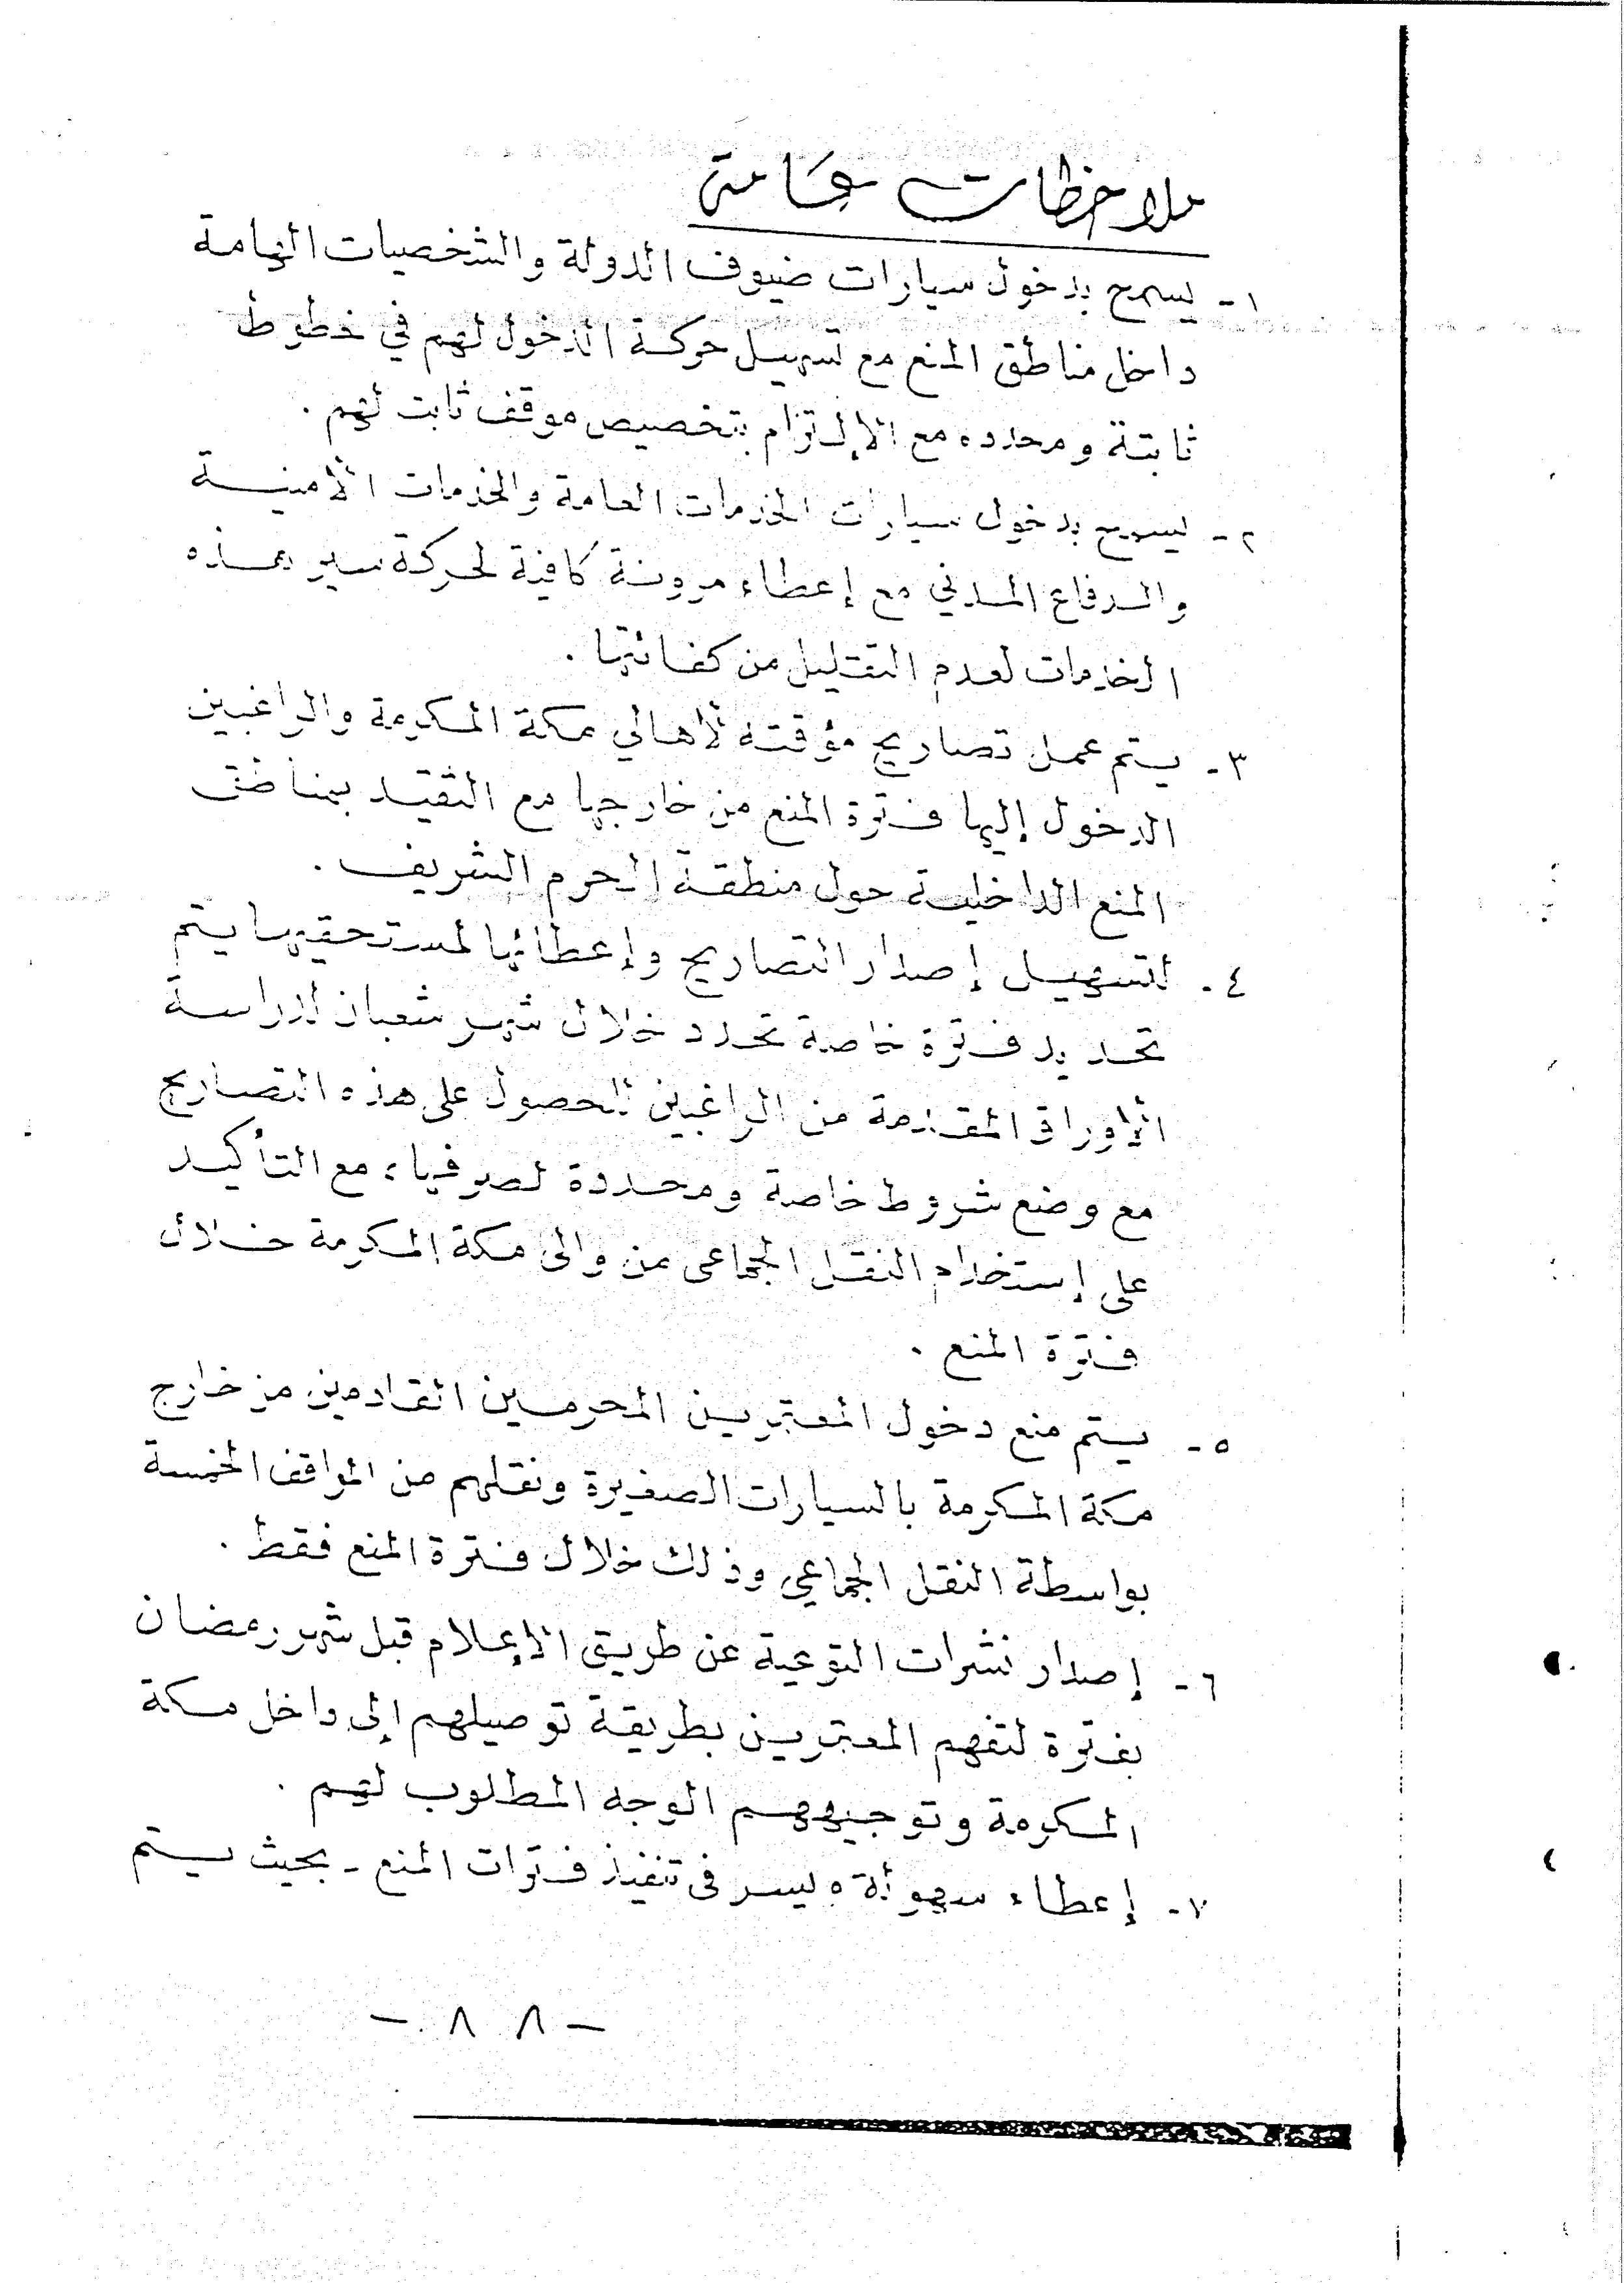 ملاحظات عامة
١- يسمح بدخول سيارات ضيوف الدولة والشخصيات الهامة
داخل مناطق المنع مع تسهيل حركة الدخول لهم في خطوط
ثابتة ومحدده مع الإلتزام بتخصيص موقف ثابت لهم .
٢- يسمح بدخول سيارات الخدمات العامة والخدمات الأمنية
والدفاع المدني مع إعطاء مرونة كافية لحركة سير هذه
الخدمات لعدم التقليل من كفائتها .
٣- يتم عمل تصاريح مؤقته لأهالي مكة المكرمة والراغبين
الدخول إليها فترة المنع من خارجها مع التقيد بمناطق
المنع الداخلية حول منطقة الحرم الشريف .
٤- لتسهيل إصدار التصاريح وإعطائها لمستحقيها يتم
تحديد فترة خاصة تحدد خلال شهر شعبان لدراسة
الأوراق المقدمة من الراغبين للحصول على هذه التصاريح
مع وضع شروط خاصة ومحددة لصرفها، مع التأكيد
على إستخدام النقل الجماعى من والى مكة المكرمة خلال
فترة المنع .
٥- يتم منع دخول المعتمرين المحرمين القادمين من خارج
مكة المكرمة بالسيارات الصغيرة ونقلهم من المواقف الخمسة
بواسطة النقل الجماعي وذلك خلال فترة المنع فقط .
٦- إصدار نشرات التوعية عن طريق الإعلام قبل شهر رمضان
بفترة لتفهم المعتمرين بطريقة توصيلهم إلى داخل مكة
المكرمة وتوجيههم الوجه المطلوب لهم .
٧- إعطاء سهولة ويسر فى تنفيذ فترات المنع - بحيث يتم
- ٨٨ -